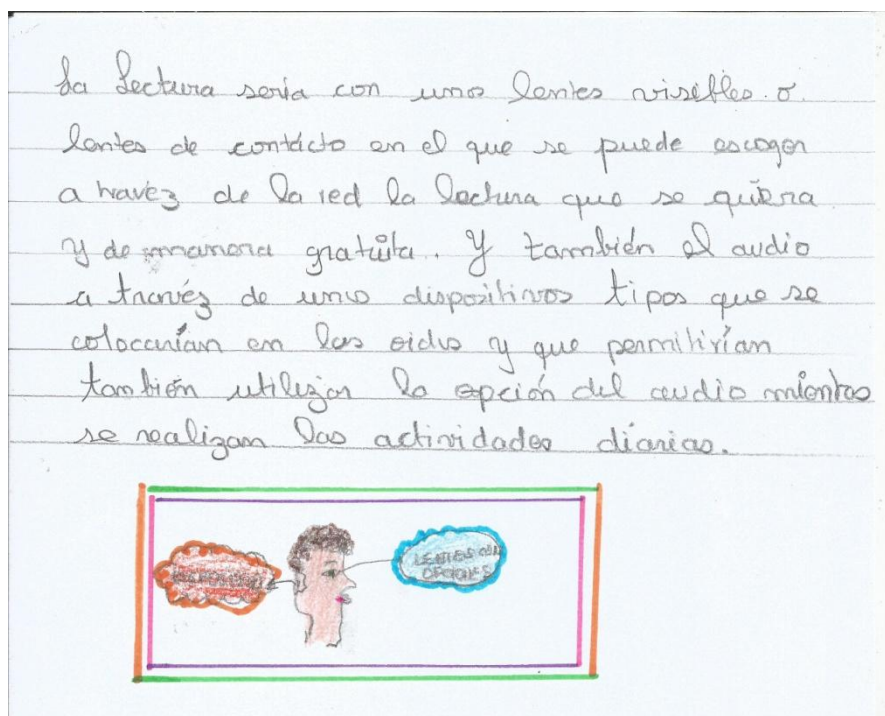 La Lectura sería con unos lentes visibles o
lentes de contácto en el que se puede escoger
a travéz de la red la lectura que se quiera
y de manera gratuíta. Y también el audio
a travéz de unos dispositivos tipos que se
colocarían en los oidos y que permitirían
también utilizar la opción del audio mientas
se realizan las actividades diárias.
LENTES CON
OPCIONES